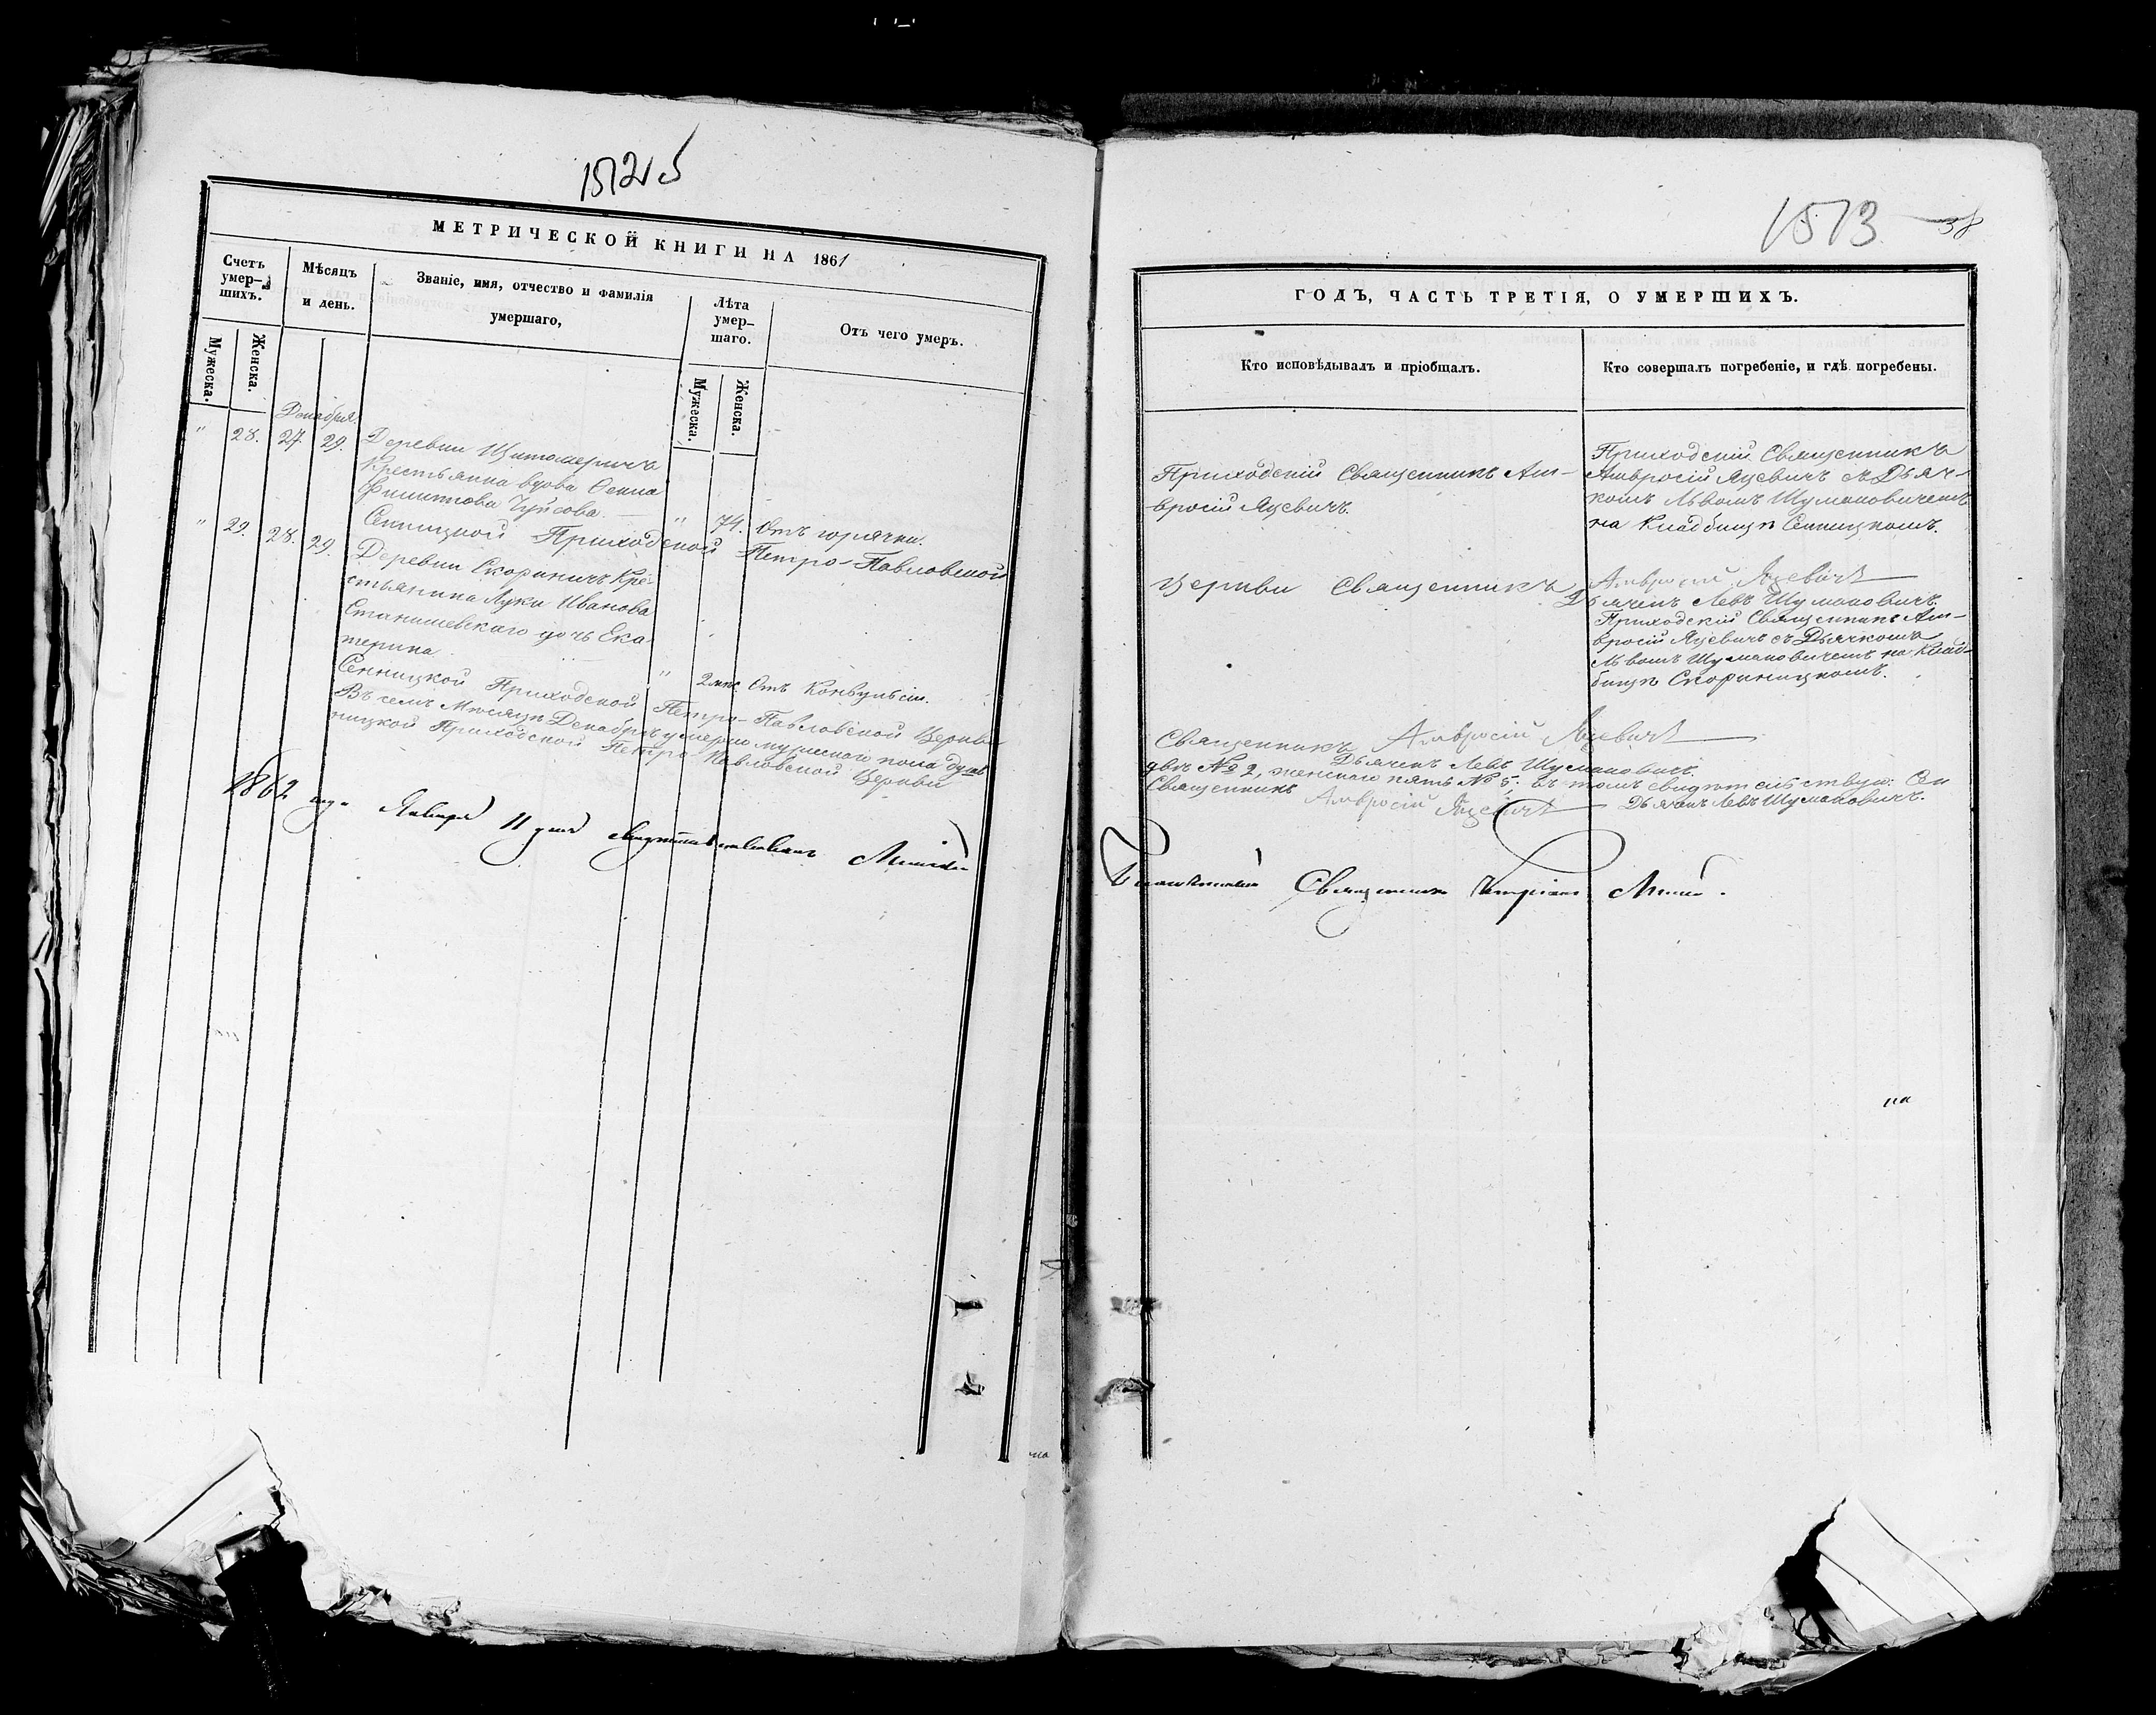 1512 5
МЕТРИЧЕСКОЙ КНИГИ НА 1861
Счетъ умер- шихъ.
Мѣсяцъ и день.
Званіе, имя, отчество и фамилія умершаго,
Лѣта умер- шаго.
Отъ чего умеръ.
Мужеска.
Женска.
Мужеска.
Женска.
Декабря.
" 28. 27. 29. Деревни Щитомиричъ
Крестьянка вдова
Филиппова
" 74. Отъ горячки.
Сенницкой Приходской Петро-Павловской
" 29. 28. 29. Деревни Скориничъ Кре-
стьянина Луки Иванова
Станишевскаго дочь Ека-
терина
" 2 мѣс. Отъ Конвульсіи.
Сенницкой Приходской Петро-Павловской Церкви
Въ семъ Мѣсяцѣ Декабрѣ умерло мужескаго пола душъ
ницкой Приходской Петро-Павловской Церкви
1862 года Января 11 дня свидѣтельствовалъ Минскій
1513 38
ГОДЪ, ЧАСТЬ ТРЕТІЯ, О УМЕРШИХЪ.
Кто исповѣдывалъ и пріобщалъ.
Кто совершалъ погребеніе, и гдѣ погребены.
Приходскій Священникъ Ам-
вросій Яцевичъ.
Приходскій Священникъ
Амвросій Яцевичъ съ Дьяч-
комъ Львомъ Шумаковичемъ
на Кладбищѣ Сенницкомъ.
Церкви Священникъ Амвросій Яцевичъ
Дьячекъ Левъ Шумаковичъ.
Приходскій Священникъ Ам-
вросій Яцевичъ съ Дьячкомъ
Львомъ Шумаковичемъ на Клад-
бищѣ Скориницкомъ.
Священникъ Амвросій Яцевичъ
Дьячекъ Левъ Шумаковичъ.
двѣ № 2, женскаго пять № 5. въ томъ свидѣтельствую: Сен
Священникъ Амвросій Яцевичъ Дьячекъ Левъ Шумаковичъ.
Священникъ